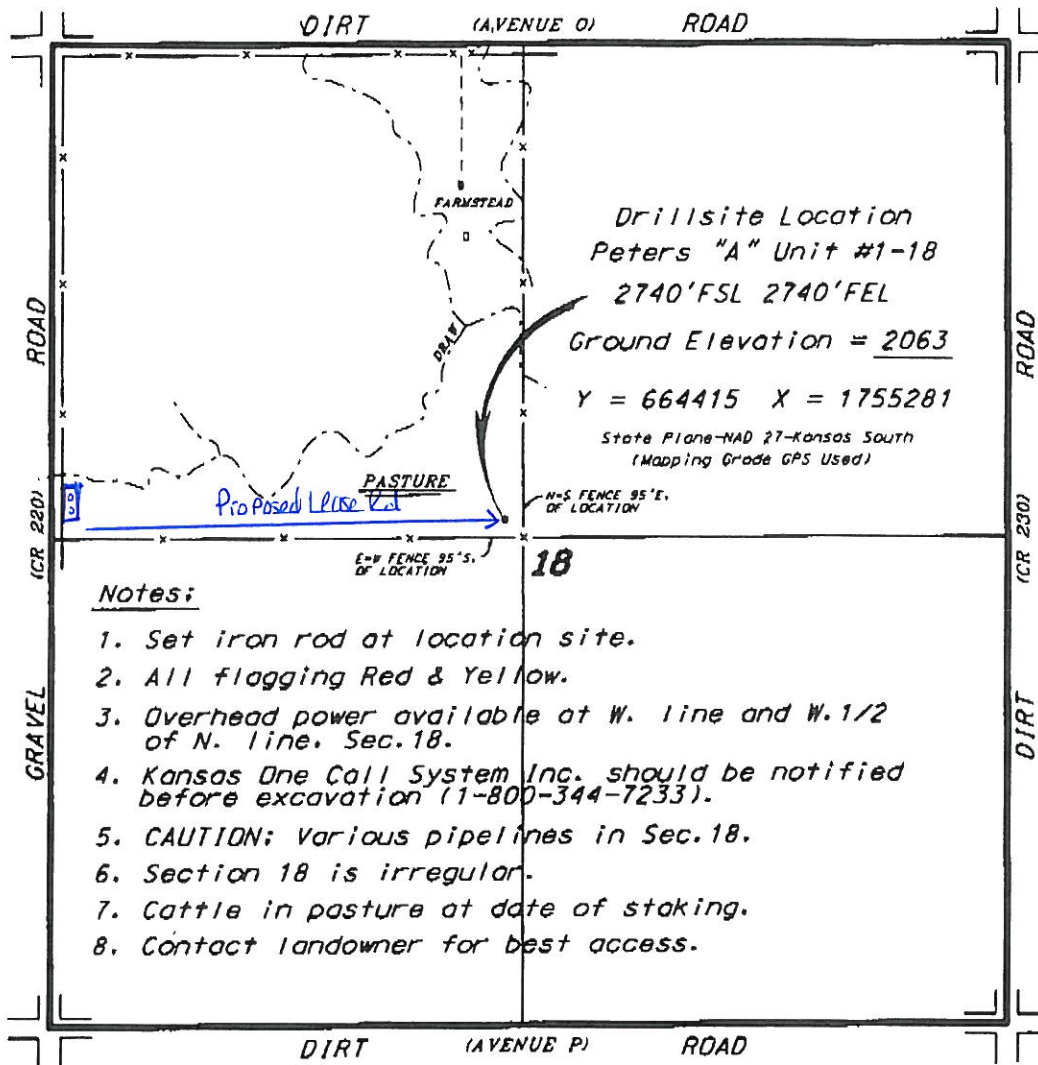 DIRT (AVENUE O) ROAD
FARMSTEAD
Drillsite Location
Peters "A" Unit #1-18
2740'FSL 2740'FEL
Ground Elevation = 2063
Y = 664415 X = 1755281
State Plane-NAD 27-Kansas South
(Mapping Grade GPS Used)
DRAW
PASTURE
Proposed Lease Rd
N-S FENCE 95'E.
OF LOCATION
E-W FENCE 95'S.
OF LOCATION
18
GRAVEL (CR 220) ROAD
DIRT (CR 230) ROAD
Notes:
1. Set iron rod at location site.
2. All flagging Red & Yellow.
3. Overhead power available at W. line and W.1/2
of N. line. Sec.18.
4. Kansas One Call System Inc. should be notified
before excavation (1-800-344-7233).
5. CAUTION: Various pipelines in Sec.18.
6. Section 18 is irregular.
7. Cattle in pasture at date of staking.
8. Contact landowner for best access.
DIRT (AVENUE P) ROAD